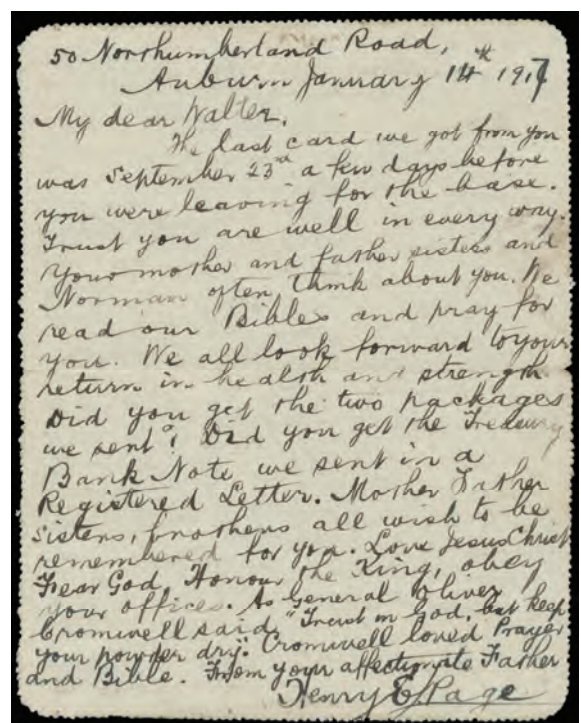 50 Northumberland Road,
Auburn January 14th 1917
My dear Walter,
The last card we got from you
was September 23rd a few days before
you were leaving for the base.
Trust you are well in every way.
Your mother and father sisters and
Norman often think about you. We
read our Bibles and pray for
you. We all look forward to your
return in health and strength.
Did you get the two packages
we sent? Did you get the Treasury
Bank Note we sent in a
Registered Letter. Mother Father
sisters, brothers all wish to be
remembered for you. Love Jesus Christ
Fear God, Honour the King, obey
your offices. As General Oliver
Cromwell said, "Trust in God, but keep
your powder dry. Cromwell loved Prayer
and Bible. From your affectionate Father
Henry E Page